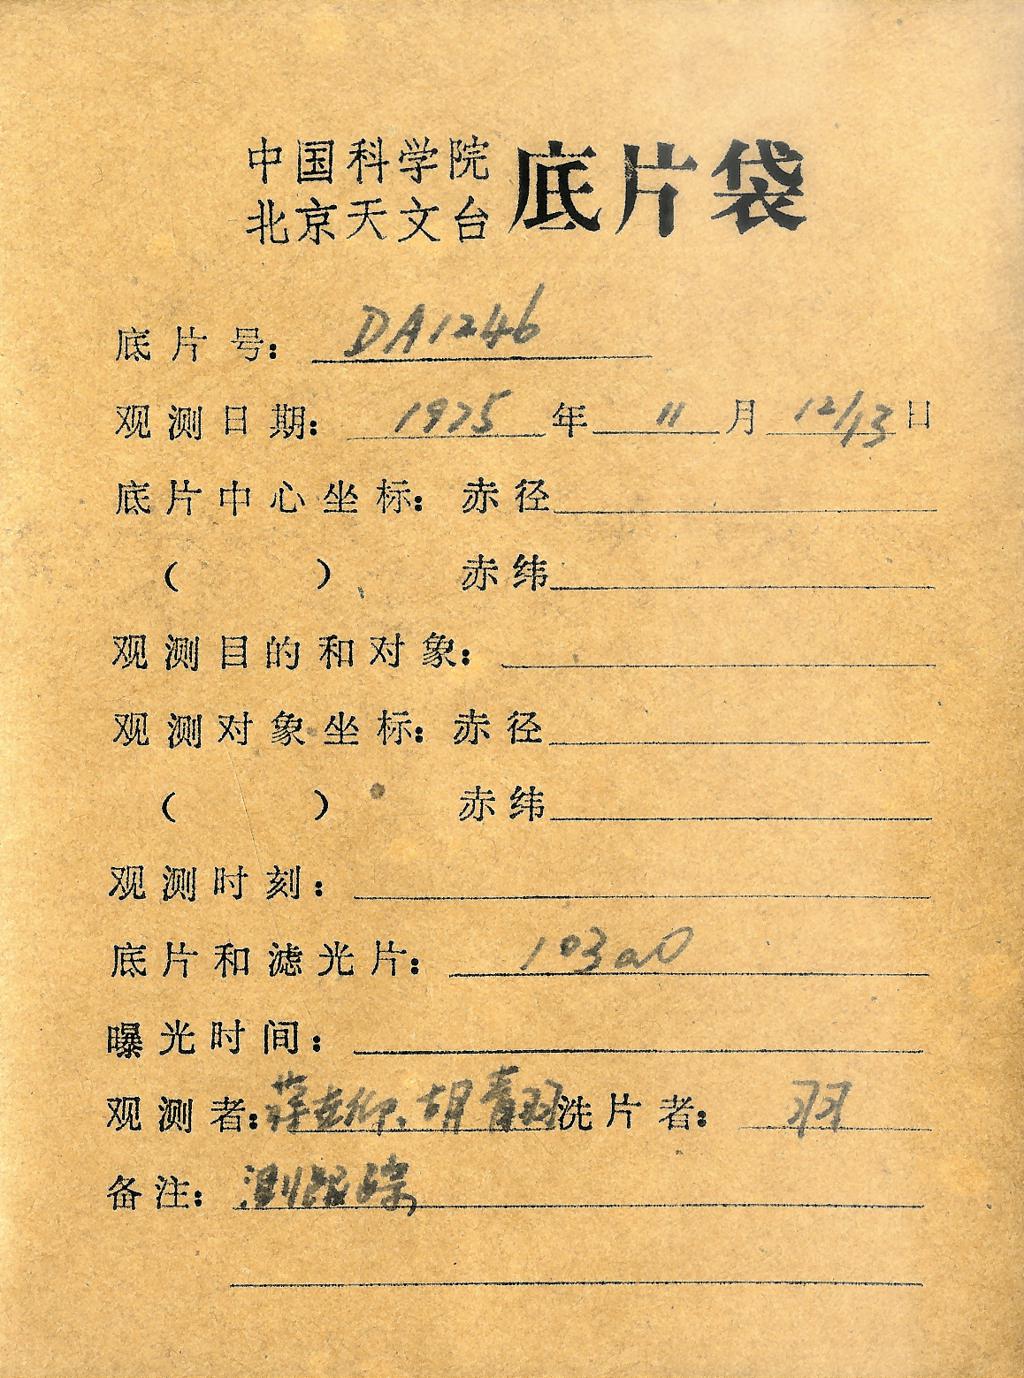 中国科学院
北京天文台 底片袋
底片号: DA1246
观测日期: 1975年11月12/13日
底片中心坐标: 赤径
( ) 赤纬
观测目的和对象:
观测对象坐标: 赤径
( ) 赤纬
观测时刻:
底片和滤光片: 103aO
曝光时间:
观测者: 蒋、胡青羽 洗片者: 羽
备注: 测跟踪